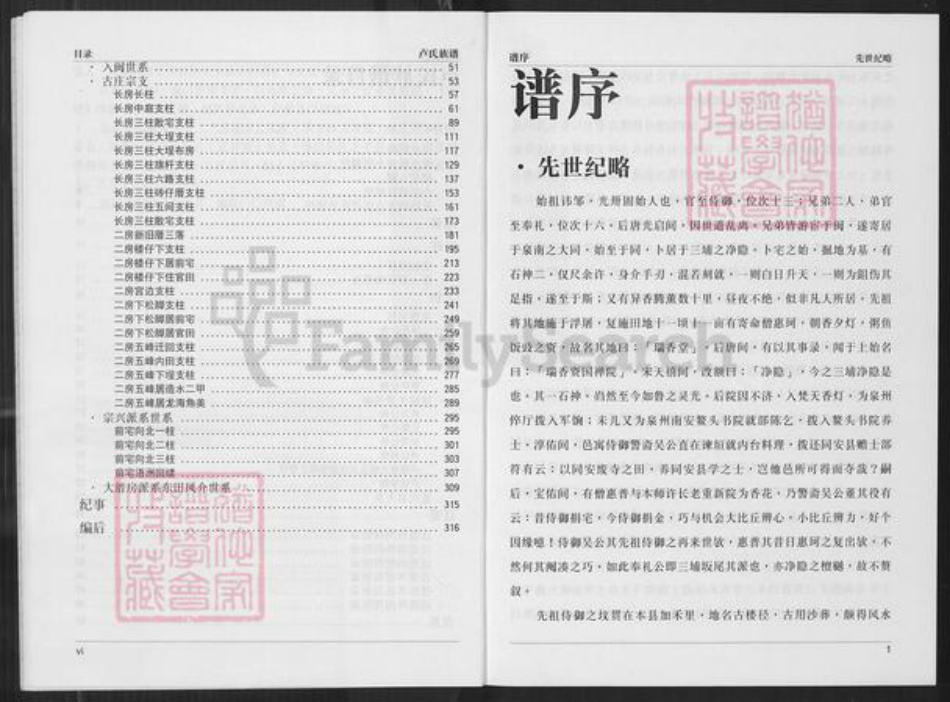 目录 卢氏族谱
· 入闽世系 51
· 古庄宗支 53
长房长柱 57
长房中庭支柱 61
长房三柱敝宅支柱 89
长房三柱大埕支柱 111
长房三柱大埕布房 117
长房三柱旗杆支柱 129
长房三柱六路支柱 137
长房三柱砖仔厝支柱 153
长房三柱五间支柱 161
长房三柱敝宅支柱 173
二房新旧厝三落 181
二房楼仔下支柱 195
二房楼仔下居前宅 213
二房楼仔下住官田 223
二房宫边支柱 233
二房下松脚支柱 241
二房下松脚居前宅 249
二房下松脚居官田 259
二房五峰迁回支柱 265
二房五峰内田支柱 269
二房五峰下埕支柱 277
二房五峰居造水二甲 285
二房五峰居龙海角美 289
· 宗兴派系世系 295
前宅向北一柱 295
前宅向北二柱 301
前宅向北三柱 303
前宅浯洲 307
· 大 房派系东田凤介世系 309
纪事 315
编后 316
vi
谱序 先世纪略
谱序
· 先世纪略
始祖讳邹，光州固始人也，官至侍御，位次十三；兄弟二人，弟官
至奉礼，位次十六。后唐光启间，因世道乱离，兄弟皆游宦于闽，遂寄居
于泉南之大同。始至于同，卜居于三埔之净隐。卜宅之始，掘地为基，有
石神二，仅尺余许，身介手刃，混若刻就，一则白日升天，一则为鉏伤其
足指，遂至于斯；又有异香腾薰数十里，昼夜不绝，似非凡人所居。先祖
将其地施于浮屠，复施田地十一顷十一亩有寄命僧惠珂，朝香夕灯，粥鱼
饭豉之资，故名其地曰：「瑞香堂」。后唐间，有以其事录，闻于上始名
曰：「瑞香资国禅院」，宋天禧间，改额曰：「净隐」，今之三埔净隐是
也。其一石神，尚然至今如鲁之灵光。后院因不济，入焚天香灯，为泉州
倅厅拨入军饷；未几又为泉州南安鳌头书院就部陈乞，拨入鳌头书院养
士。淳佑间，邑寓侍御警斋吴公直在谏垣就内台料理，拨还同安县赡士部
符有云：以同安废寺之田，养同安县学之士，岂他邑所可得而夺哉？嗣
后，宝佑间，有僧惠普与本师许长老重新院为香花，乃警斋吴公董其役有
云：昔侍御捐宅，今侍御捐金，巧与机会大比丘辨心。小比丘辨力，好个
因缘噫！侍御吴公其先祖侍御之再来世欤，惠普其昔日惠珂之复出欤，不
然何其阄凑之巧。如此奉礼公即三埔坂尾其派也，亦净隐之檀樾，故不赘
叙。
先祖侍御之坟贯在本县加禾里，地名古楼径，古用沙葬，颇得风水
1
FamilySearch